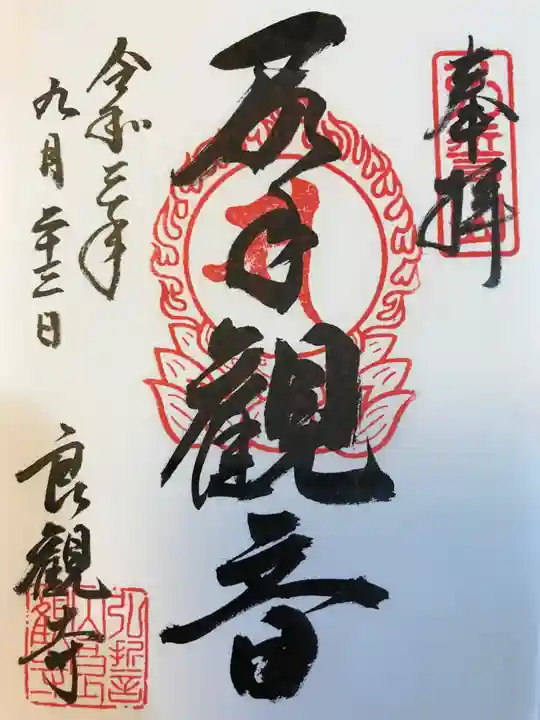 奉拝
尻手觀音
令和三年
九月二十三日
良觀寺